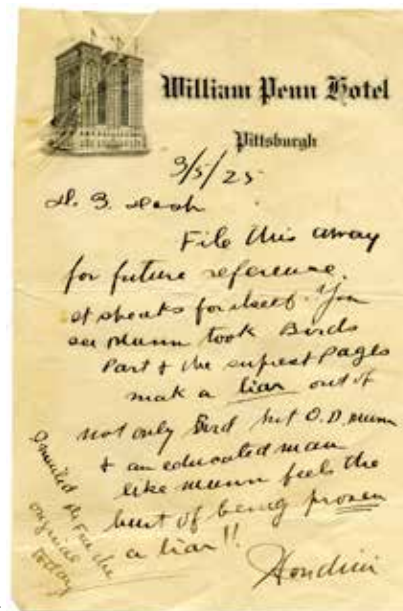 William Penn Hotel
Pittsburgh
3/5/25
File this away
for future reference.
it speaks for itself. You
see Munn took Birds
Part & the Pages
make a liar out of
not only Bird but O.D. Munn
& an educated man
like Munn feels the
hurt of being proven
a liar!!
Houdini
I mailed the
original
today